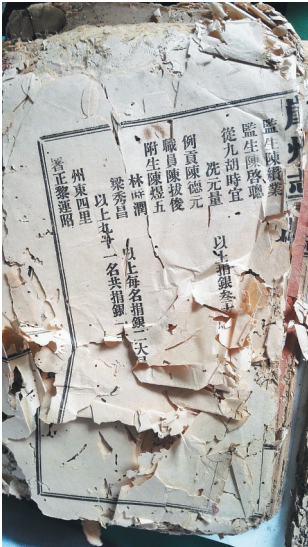 監生陳纘業
監生陳啓聰
從九胡時宜
冼元量
以上捐銀叁
例貢陳德元
職員陳拔俊
附生陳煜五
林時潤
以上每名捐銀二大
梁秀昌
以上 一名共捐銀
州東四里
耆正黎運昭